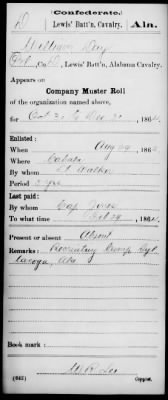 (Confederate.)
D Lewis' Batt'n, Cavalry. Ala.
William Day
Pvt, Co. D, Lewis' Batt'n, Alabama Cavalry.
Appears on
Company Muster Roll
of the organization named above,
for Oct 31 to Dec 31, 1864.
Enlisted:
When Aug 29, 1862.
Where
By whom Lt Walker
Period 3 yrs
Last paid:
By whom Cap Jones
To what time Feb 29, 1864.
Present or absent Absent
Remarks: Recruiting Camp Syl
lacoga, Ala
Book mark:
(642)
Copyist.